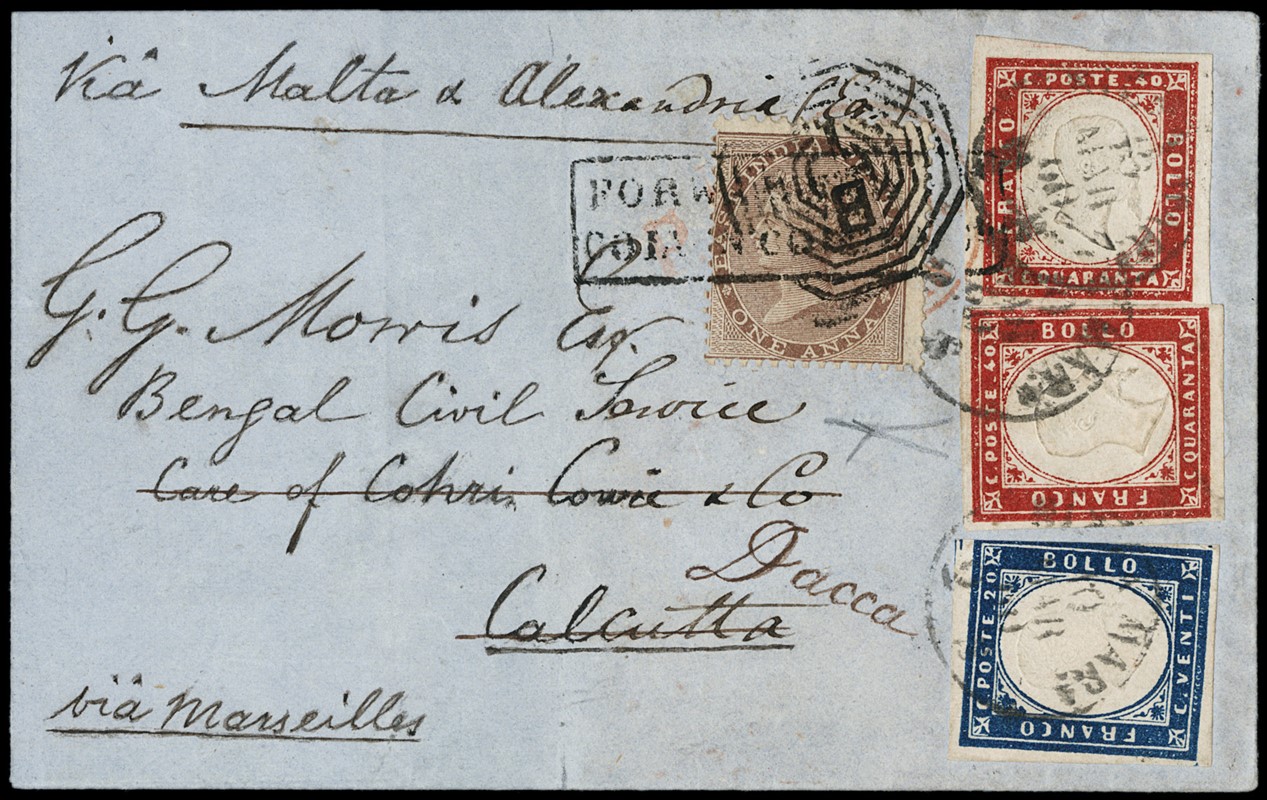 Viâ Malta & Alexandria
G. G. Morris Esq.
Bengal Civil Service
Care of Cohrin Cowie & Co
Calcutta
Dacca
viâ Marseilles
FORW
INDIA
ONE ANNA
B
C. POSTE 40
BOLLO
C QUARANTA
FRANCO
BOLLO
C. POSTE 40
C QUARANTA
FRANCO
BOLLO
C. POSTE 20
C. VENTI
FRANCO